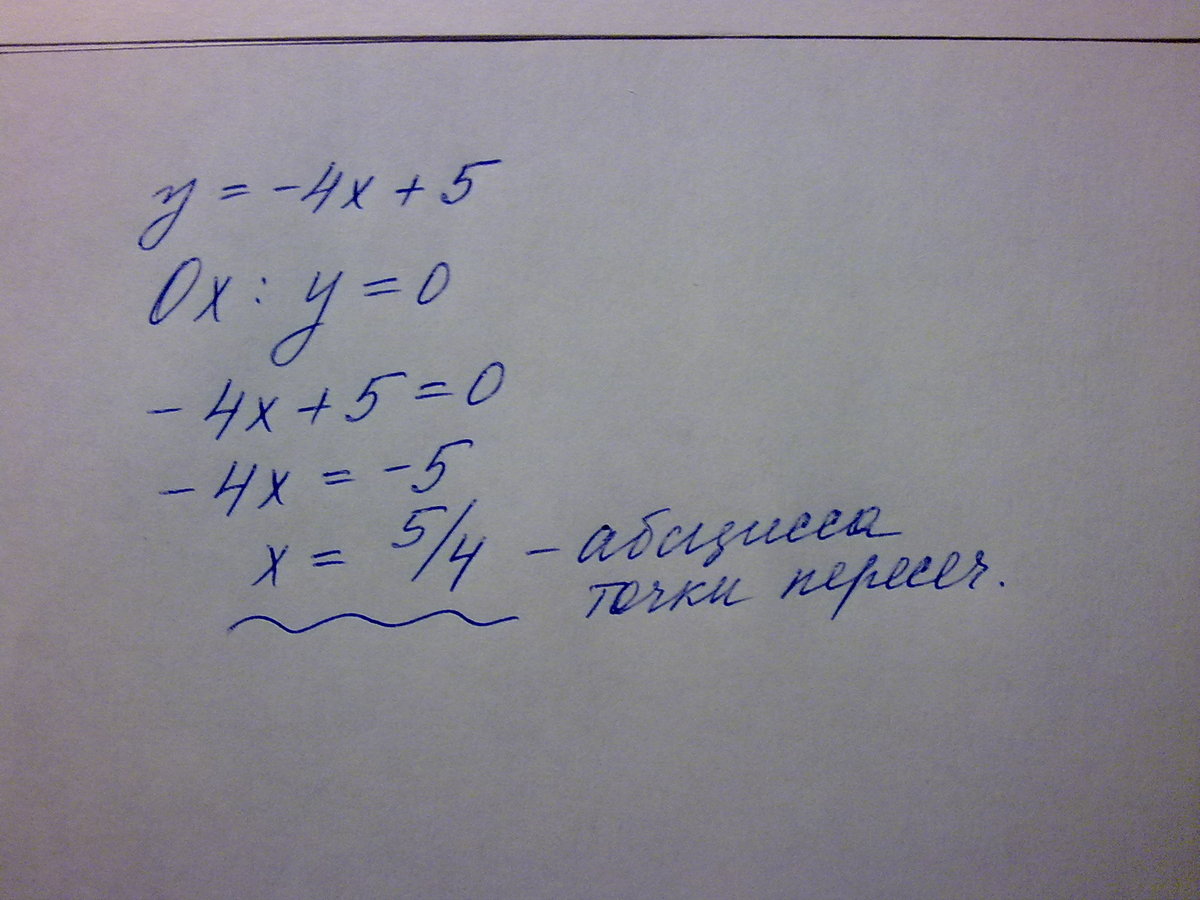 y = -4x + 5
Ox : y = 0
- 4x + 5 = 0
- 4x = -5
x = 5/4 - абсцисса
точки пересеч.